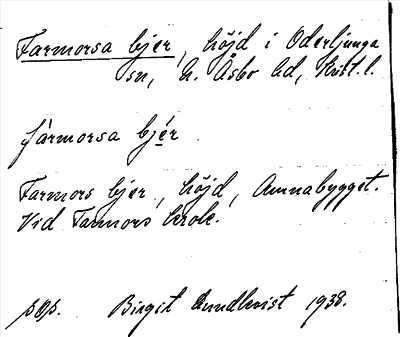 Farmorsa bjer, höjd i Oderljunga
sn, N. Åsbo hd, Krist. l.
fàrmorsa bjér
Farmors bjer, höjd, Annabygget.
Vid Farmors krok.
pop. Birgit Lundkvist 1938.